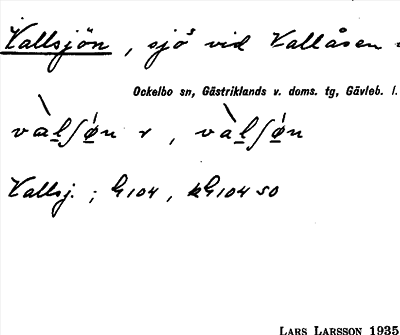 Vallsjön, sjö vid Vallåsen
Ockelbo sn, Gästriklands v. doms. tg, Gävleb. l.
Vallsj. ; G104, kG104 SO
LARS LARSSON 1935